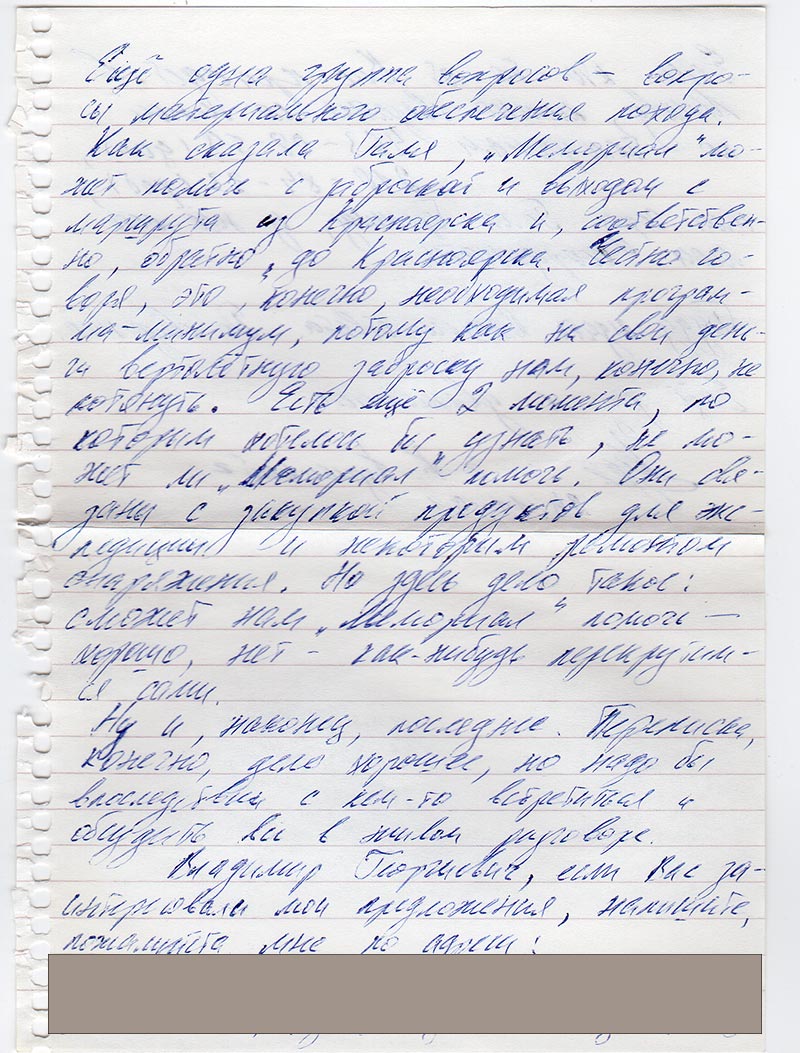 Ещё одна группа вопросов – вопро-
сы материального обеспечения похода.
Как сказала Галя, „Мемориал" мо-
жет помочь с заброской и выходом с
маршрута из Красноярска и, соответствен-
но, обратно, до Красноярска. Честно го-
воря, это, конечно, необходимая програм-
ма-минимум, потому как на свои день-
ги вертолётную заброску нам, конечно, не
потянуть. Есть ещё 2 момента, по
которым хотелось бы узнать, не мо-
жет ли „Мемориал" помочь. Они свя-
заны с закупкой продуктов для экс-
педиции и некоторым ремонтом
снаряжения. Но здесь дело такое:
сможет нам „Мемориал" помочь –
хорошо, нет – как-нибудь перекрутим-
ся сами.
Ну и, наконец, последнее. Переписка,
конечно, дело хорошее, но надо бы
впоследствии с кем-то встретиться и
обсудить все в живом разговоре.
Владимир Георгиевич, если Вас за-
интересовали мои предложения, напишите,
пожалуйста мне по адресу: